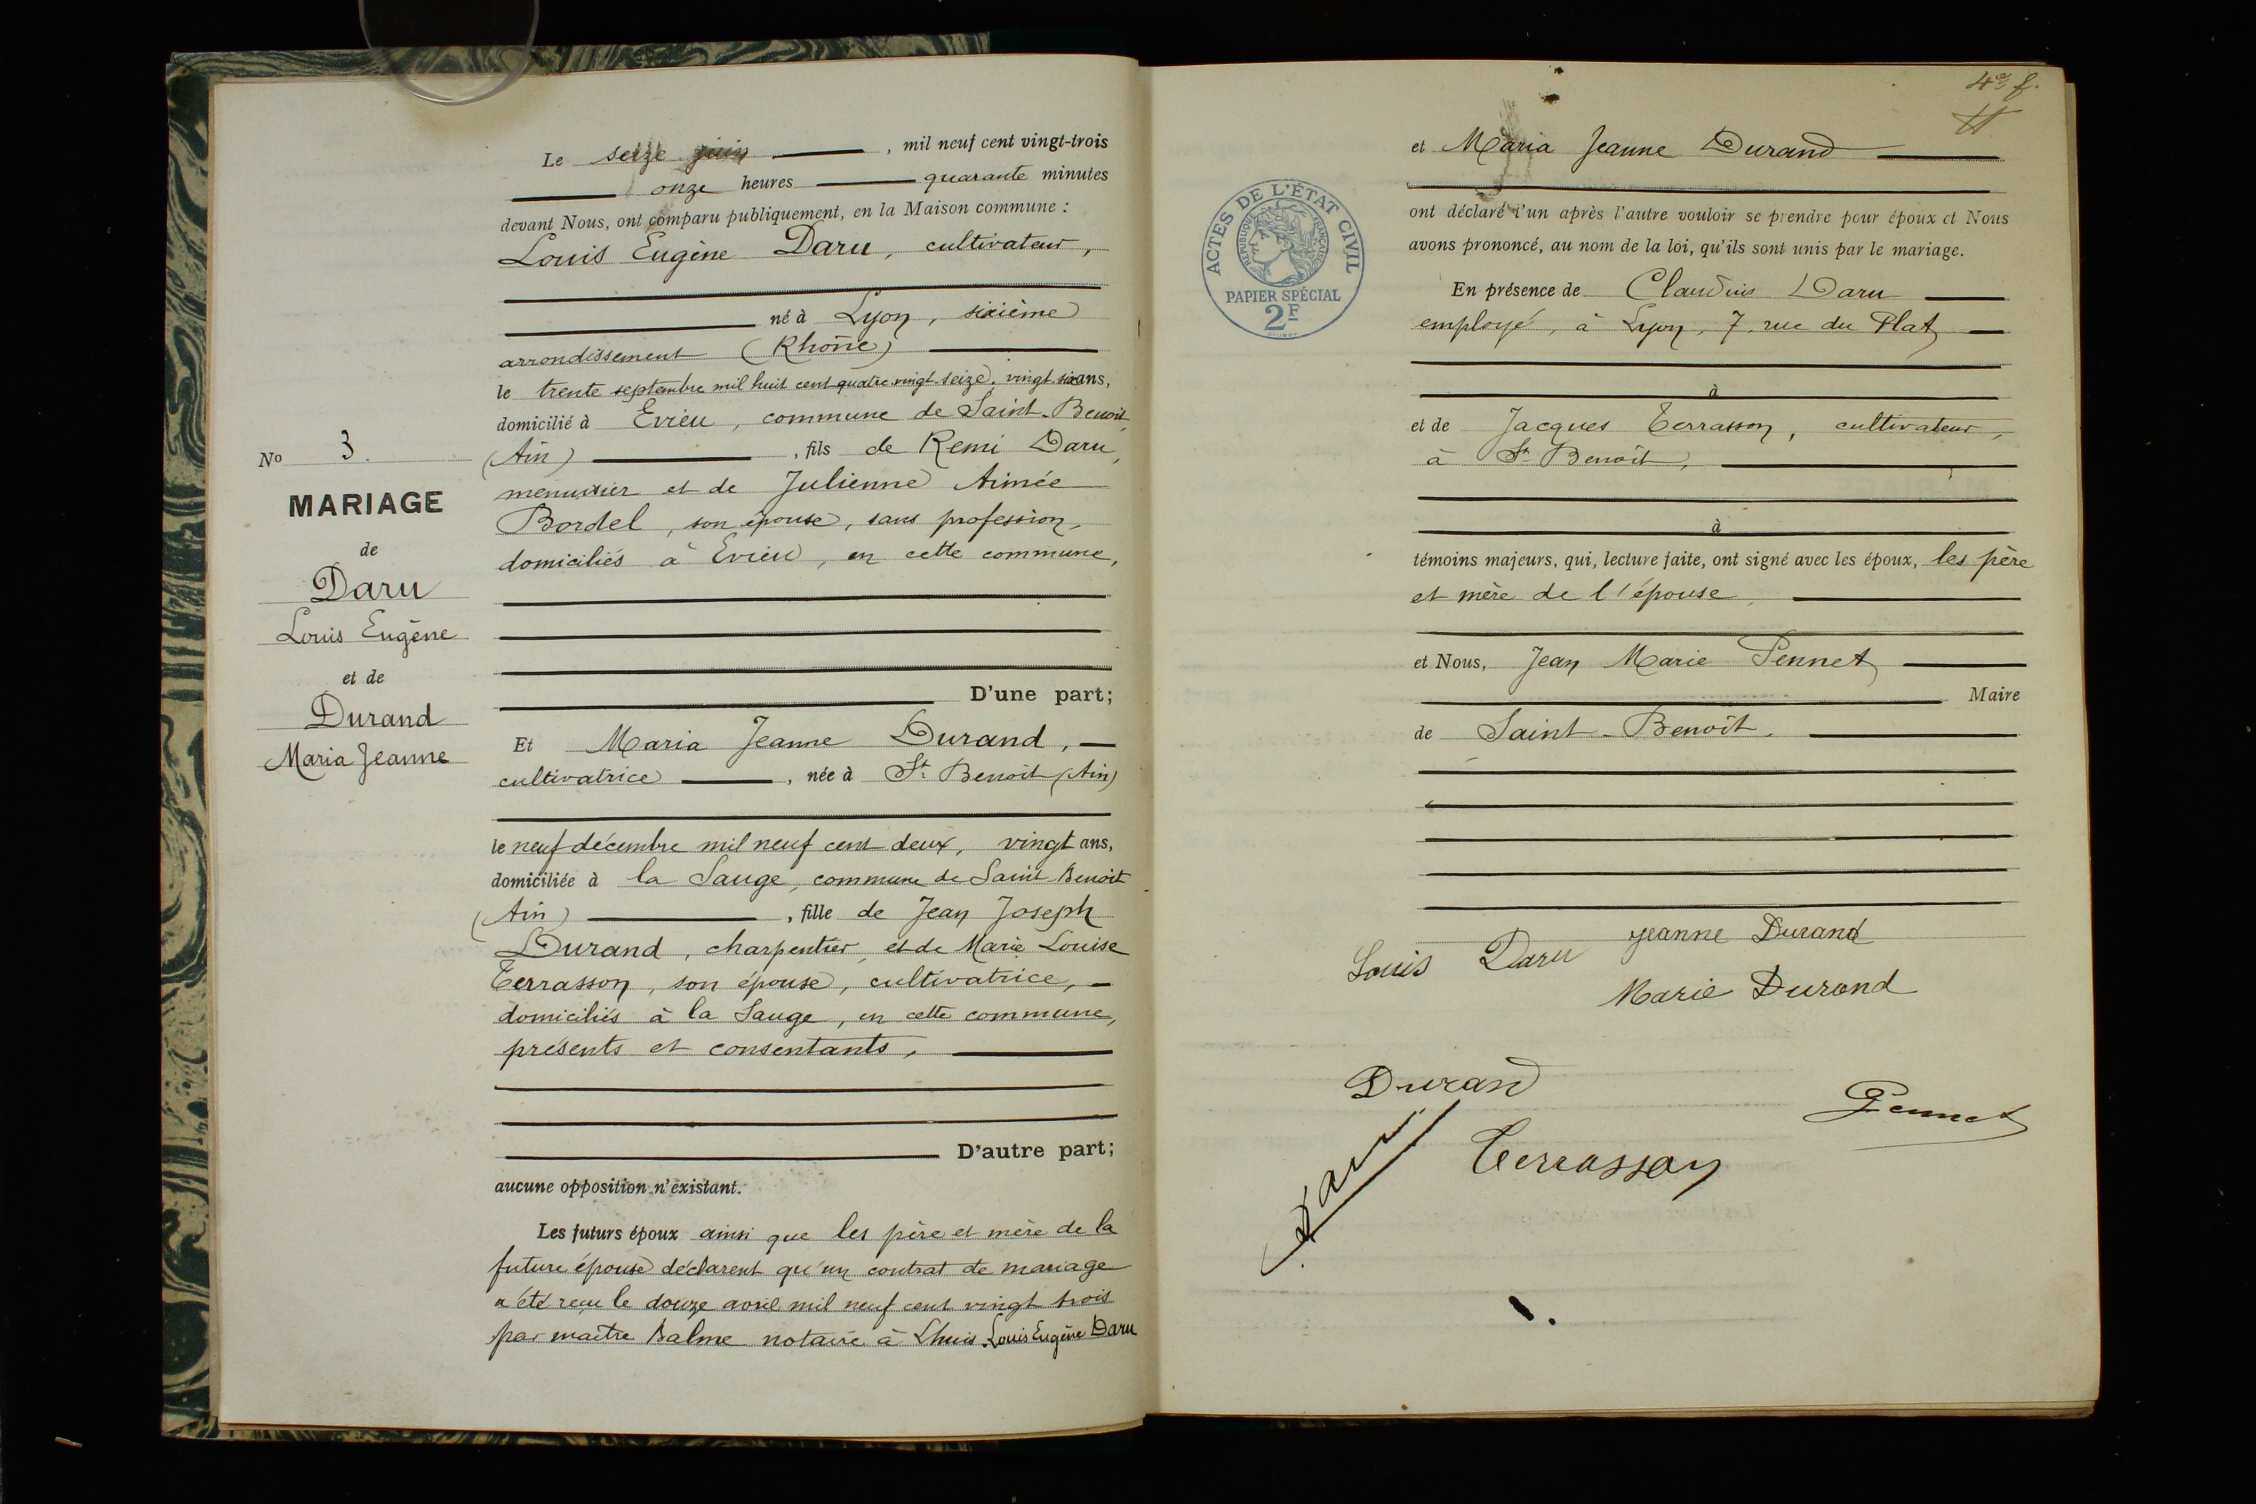 Le seize juin, mil neuf cent vingt-trois
onze heures quarante minutes
devant Nous, ont comparu publiquement, en la Maison commune :
Louis Eugène Daru, cultivateur,
né à Lyon, sixième
arrondissement (Rhône)
le trente septembre mil huit cent quatre vingt seize, vingt six ans,
domicilié à Evieu, commune de Saint-Benoit,
(Ain), fils de Remi Daru,
menuisier et de Julienne Aimée
Bordel, son épouse, sans profession,
domiciliés à Evieu, en cette commune,
D'une part;
No 3.
MARIAGE
de
Daru
Louis Eugène
et de
Durand
Maria Jeanne
Et Maria Jeanne Durand,
cultivatrice, née à St Benoit (Ain)
le neuf décembre mil neuf cent deux, vingt ans,
domiciliée à la Sauge, commune de Saint Benoit
(Ain), fille de Jean Joseph
Durand, charpentier, et de Marie Louise
Terrasson, son épouse, cultivatrice,
domiciliés à la Sauge, en cette commune,
présents et consentants,
D'autre part;
aucune opposition n'existant.
Les futurs époux ainsi que les père et mère de la
future épouse déclarent qu'un contrat de mariage
a été reçu le douze avril mil neuf cent vingt trois
par maître Balme notaire à Lhuis. Louis Eugène Daru
et Maria Jeanne Durand
ont déclaré l'un après l'autre vouloir se prendre pour époux et Nous
avons prononcé, au nom de la loi, qu'ils sont unis par le mariage.
ACTES DE L'ÉTAT CIVIL
RÉPUBLIQUE FRANÇAISE
PAPIER SPÉCIAL
2F
En présence de Claudius Daru
employé, à Lyon, 7, rue du Plat
à
et de Jacques Terrasson, cultivateur,
à St Benoît,
à
témoins majeurs, qui, lecture faite, ont signé avec les époux, les père
et mère de l'épouse
et Nous, Jean Marie Pennet
Maire
de Saint-Benoît.
Louis Daru Jeanne Durand
Marie Durand
Durand
Pennet
Daru
Terrasson